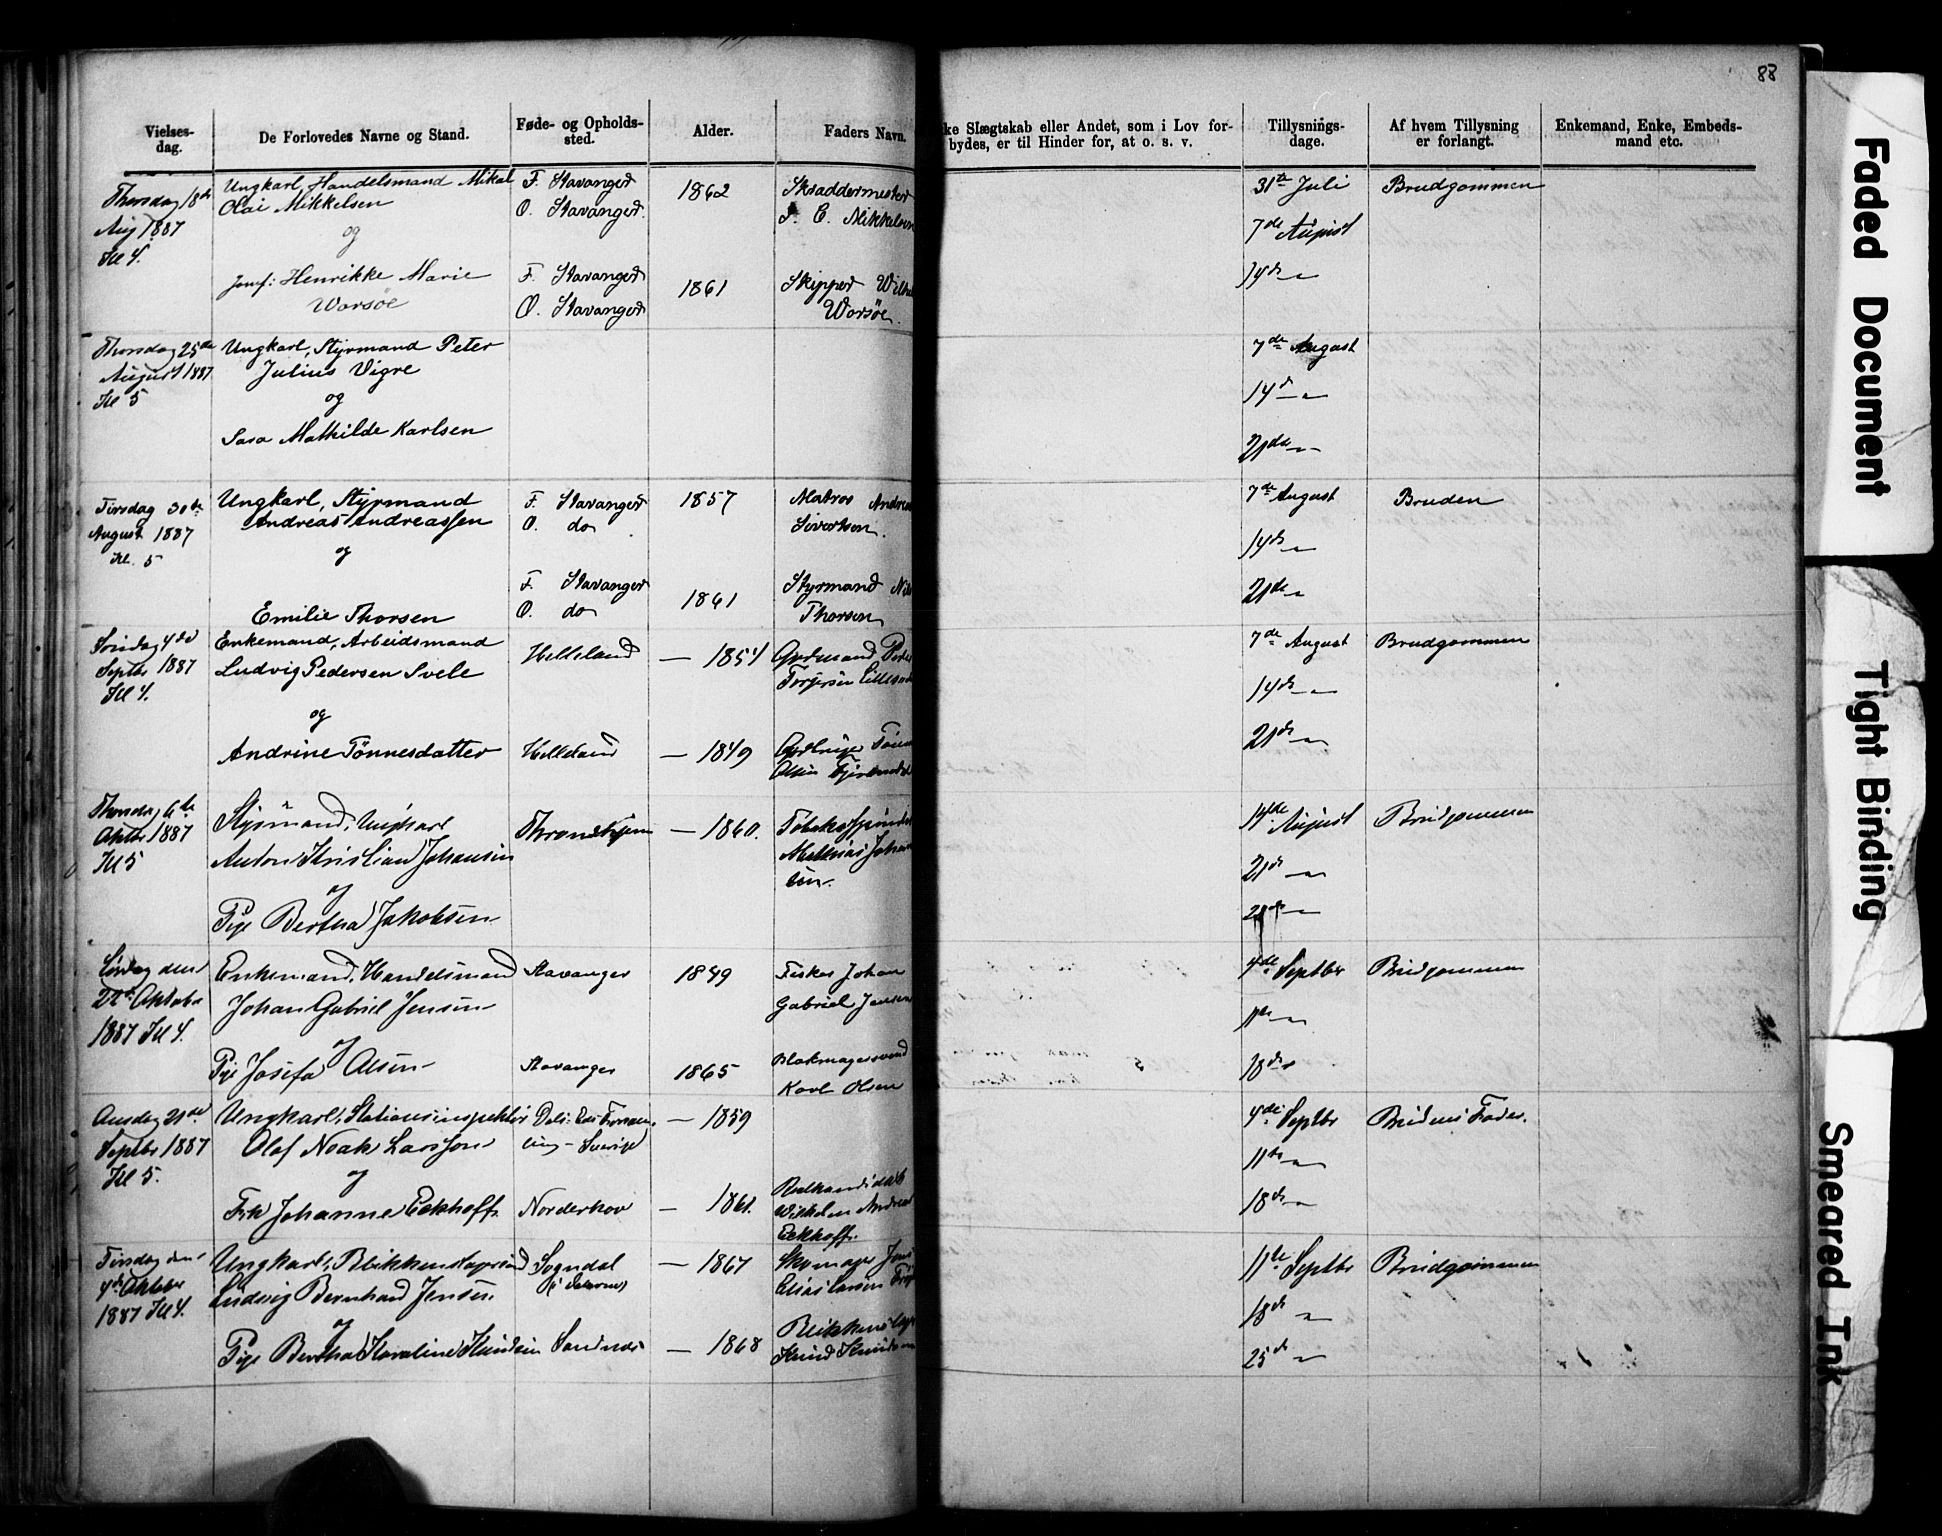 88
Vielses-
dag.
De Forlovedes Navne og Stand.
Føde- og Opholds-
sted.
Alder.
Faders Navn.
ke Slægtskab eller Andet, som i Lov for-
bydes, er til Hinder for, at o. s. v.
Tillysnings-
dage.
Af hvem Tillysning
er forlangt.
Enkemand, Enke, Embeds-
mand etc.
Thorsdag 18de
Aug 1887
Kl 4.
Ungkarl, Handelsmand Mikal
Olai Mikkelsen
og
Jomf: Henrikke Marie
Worsöe
F. Stavanger
O. Stavanger.
1862
Skraddermester
C. Mikkelsen
F. Stavanger
O. Stavanger
1861
Skipper Wilh
Worsöe.
31te Juli
7de August
14de "
Brudgommen
Thorsdag 25de
August 1887
Kl 5
Ungkarl, Styrmand Peter
Julius Vigre
og
Sara Mathilde Karlsen
7de August
14de "
21de "
Tirsdag 30te
August 1887
Kl. 5
Ungkarl, Styrmand
Andreas Andreassen
og
Emilie Thorsen
F. Stavanger
O. do
1857
Matros Andrea
Sivertsen.
F. Stavanger
O. do
1861
Styrmand Nils
Thorsen
7de August
14de "
21de "
Bruden
Söndag 4de
Septbr 1887
Kl 4.
Enkemand, Arbeidsmand
Ludvig Pedersen Svele
og
Andrine Tönnesdatter
Helleland
— 1854
Gdmand Peder
Torgersen
Helleland
— 1849
Tönn
Olsen
7de August
14de "
21de "
Brudgommen
Thorsdag 6te
Oktbr 1887
Kl 5
Styrmand, Ungkarl
Anton Kristian Johansen
og
Pige Bertha Jakobsen
Throndhjem
— 1860.
Mathias Johan
sen.
14de August
21de "
28de "
Brudgommen
Lördag den
22de Oktober
1887 Kl 4.
Enkemand, Handelsmand
Johan Gabriel Jensen
og
Pige Josefa Olsen
Stavanger
1849
Fisker Johan
Gabriel Jensen
Stavanger
1865
Blokmagersvend
Karl Olsen
4de Septbr
11te "
18de "
Brudgommen
Onsdag 21de
Septbr 1887
Kl 5.
Ungkarl, Stationsinspektör
Olaf Noak Larsson
og
Frk Johanne Eckhoff
ling - Sverige
— 1859
Norderhov
— 1861.
Wilhelm Andreas
Eckhoff.
4de Septbr
11te "
18de "
Brudens Fader.
Tirsdag den
4de Oktober
1887 Kl 4.
Ungkarl, Blikkenslagersvend
Ludvig Bernhard Jensen
og
Pige Bertha Karoline Knudsen
Sogndal
(i Dalerne)
— 1867
Skomager Jens
Elias Larsen
Sandnæs
— 1868
Blikkensl
Knud Knudsen
11te Septbr
18de "
25de "
Brudgommen
Faded Document
Tight Binding
Smeared Ink